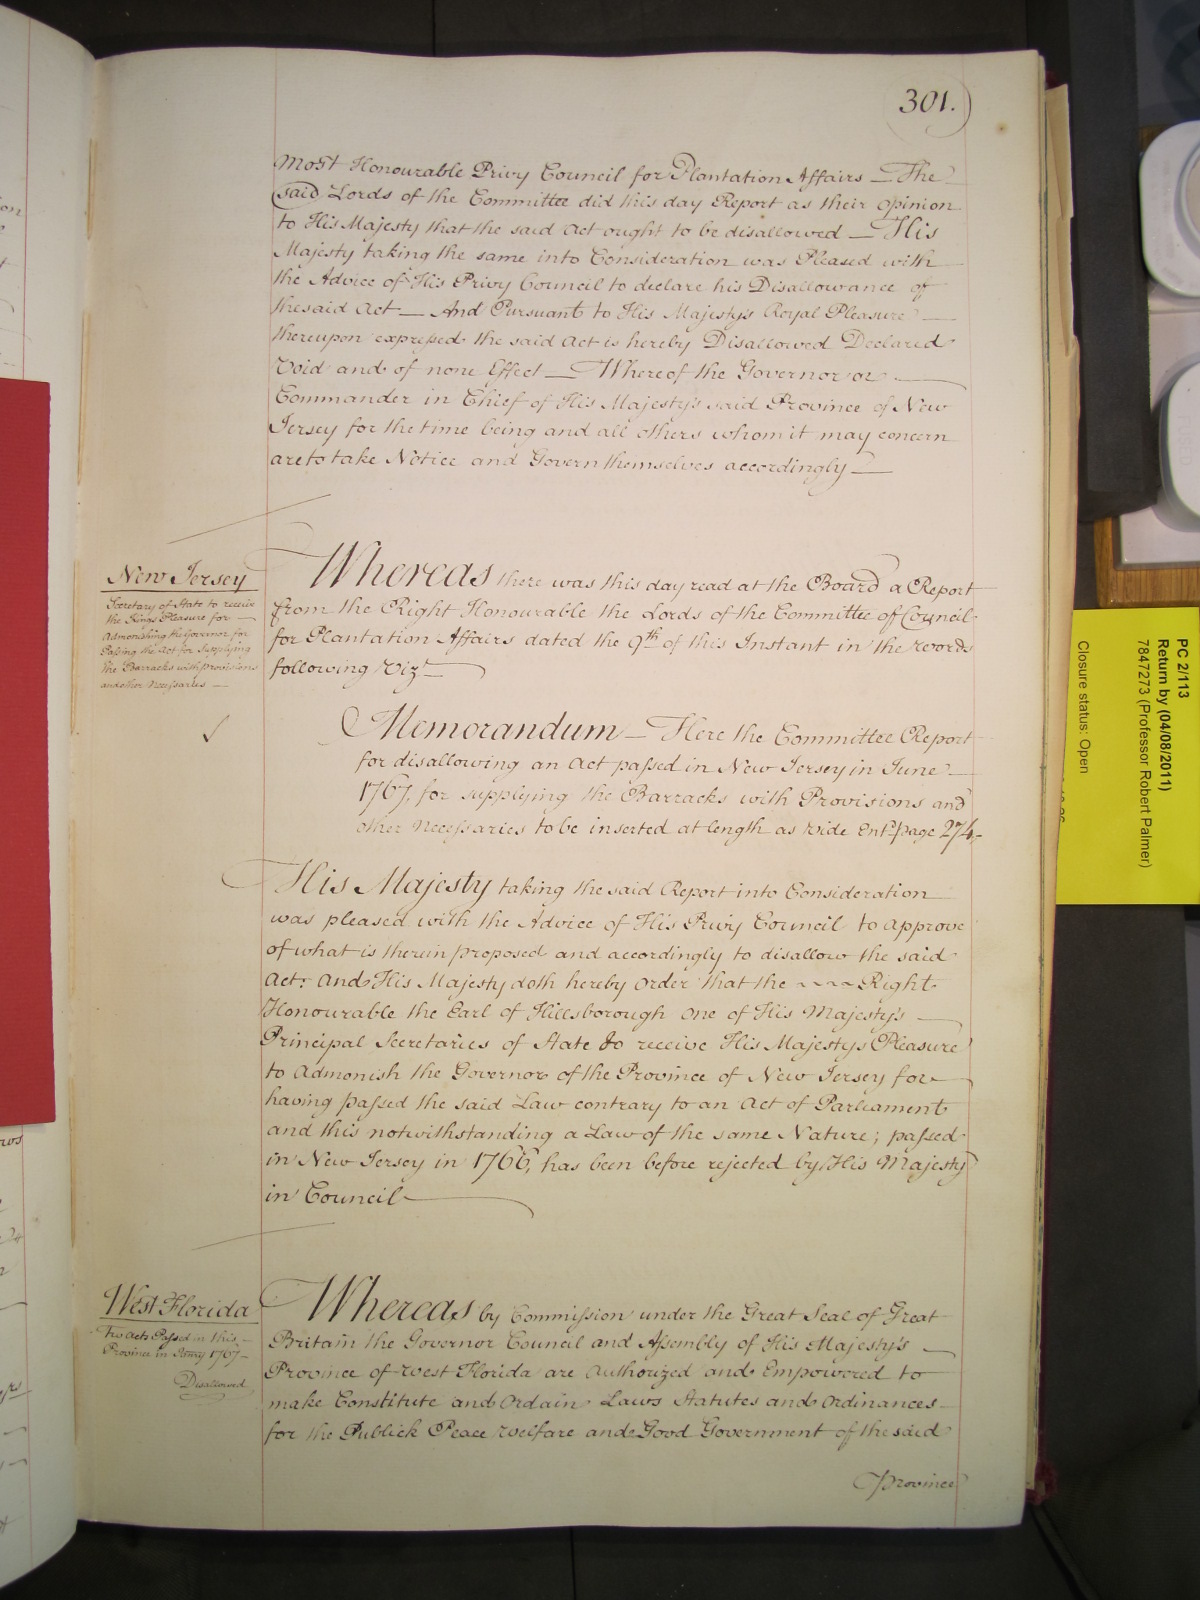 301.
Most Honourable Privy Council for Plantation Affairs — The
said Lords of the Committee did this day Report as their opinion
to His Majesty that the said Act ought to be disallowed — His
Majesty taking the same into Consideration was Pleased with
the Advice of His Privy Council to declare his Disallowance of
the said Act — And Pursuant to His Majesty's Royal Pleasure
thereupon expressed the said Act is hereby Disallowed Declared
Void and of none Effect — Whereof the Governor or
Commander in Chief of His Majesty's said Province of New
Jersey for the time being and all others whom it may concern
are to take Notice and Govern themselves accordingly —
New Jersey
Secretary of State to receive
the Kings Pleasure for
Admonishing the Governor for
Passing the Act for Supplying
the Barracks with provisions
and other Necessaries —
Whereas there was this day read at the Board a Report
from the Right Honourable the Lords of the Committee of Council
for Plantation Affairs dated the 9th of this Instant in the words
following Vizt
Memorandum — Here the Committee Report
for disallowing an Act passed in New Jersey in June
1767, for supplying the Barracks with Provisions and
other Necessaries to be inserted at length as vide Entd page 274.
His Majesty taking the said Report into Consideration
was pleased with the Advice of His Privy Council to approve
of what is therein proposed and accordingly to disallow the said
Act: And His Majesty doth hereby order that the Right
Honourable the Earl of Hillsborough one of His Majesty's
Principal Secretaries of State do receive His Majesty's Pleasure
to Admonish the Governor of the Province of New Jersey for
having passed the said Law contrary to an Act of Parliament
and this notwithstanding a Law of the same Nature; passed
in New Jersey in 1766, has been before rejected by His Majesty
in Council
West Florida
Two Acts Passed in this
Province in Janry 1767 —
Disallowed
Whereas by Commission under the Great Seal of Great
Britain the Governor Council and Assembly of His Majesty's
Province of West Florida are Authorized and Empowered to
make Constitute and Ordain Laws Statutes and Ordinances
for the Publick Peace Welfare and Good Government of the said
Province
PC 2/113
Return by (04/08/2011)
7847273 (Professor Robert Palmer)
Closure status: Open